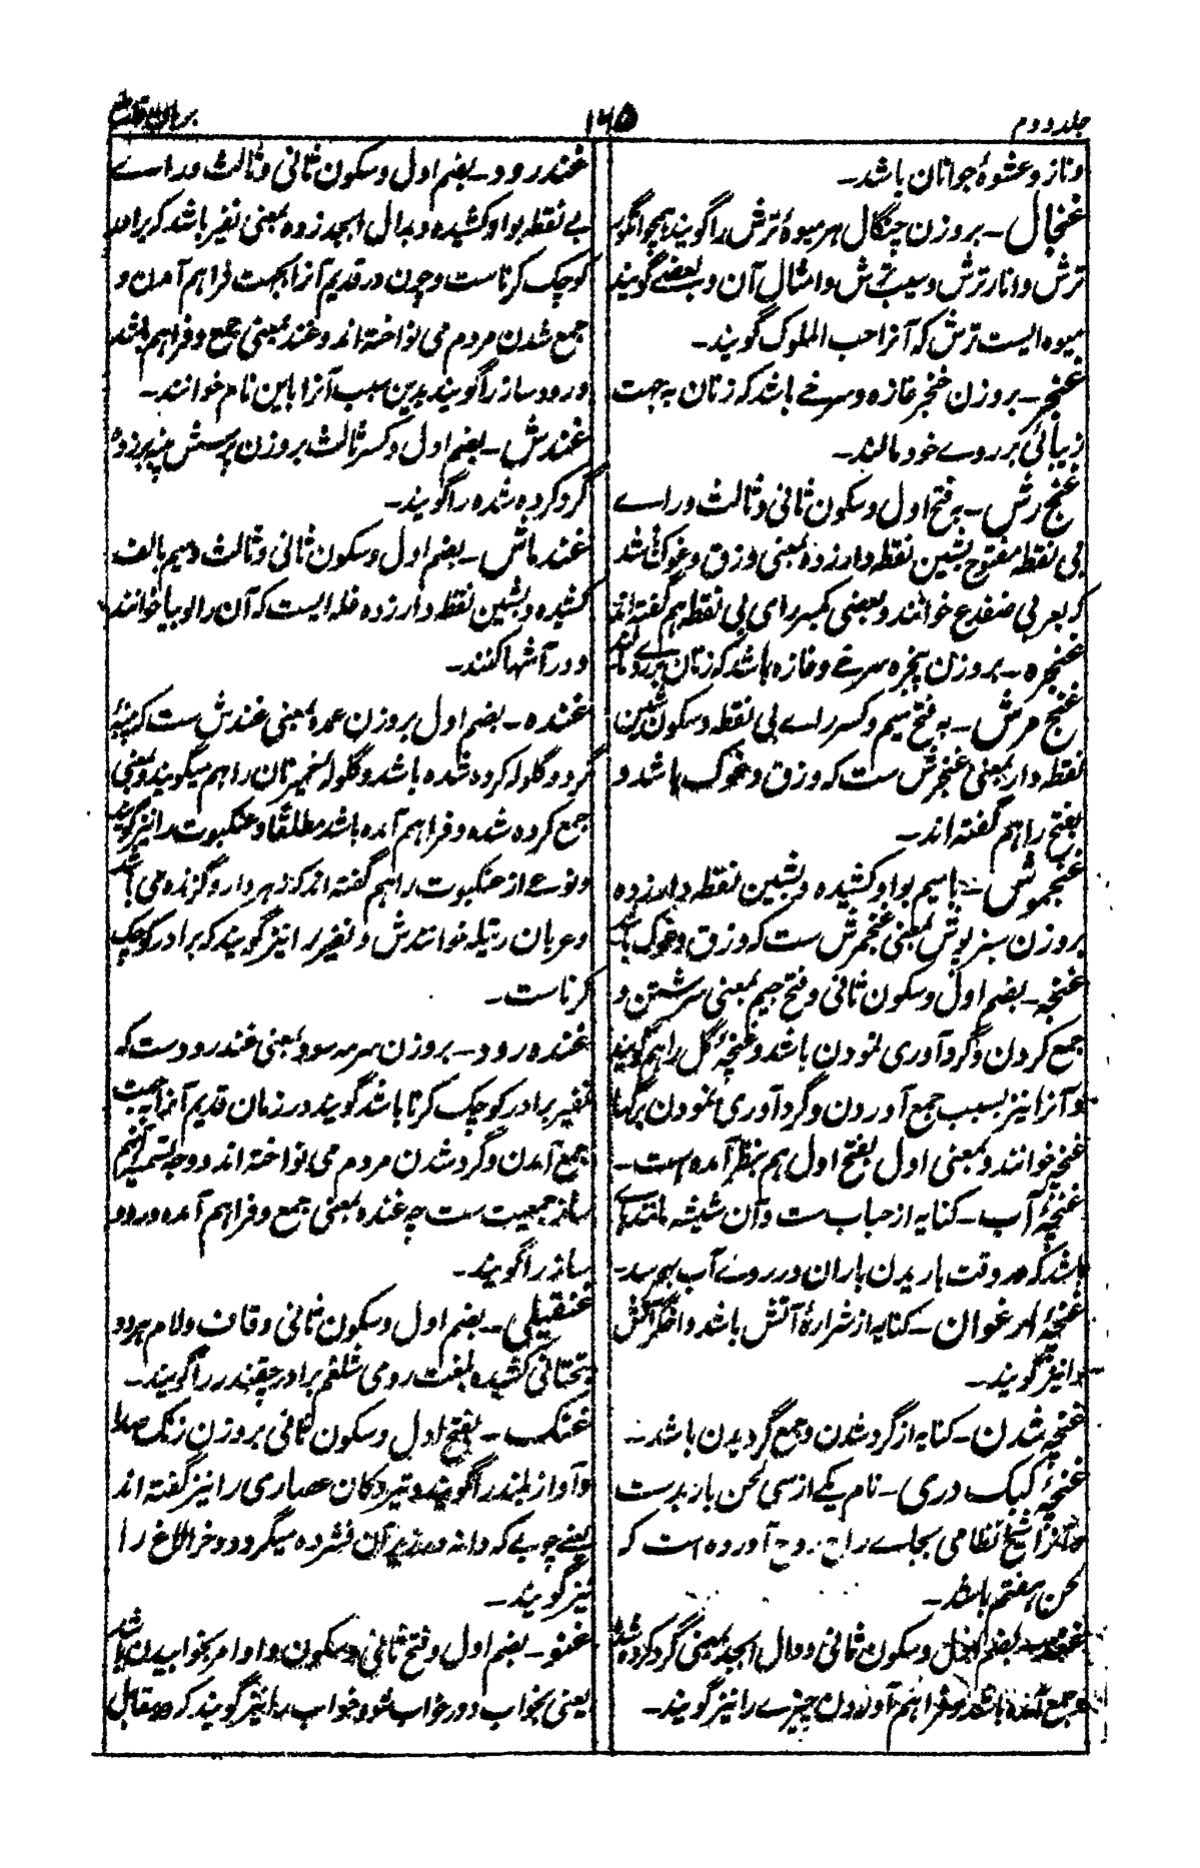 جلد دوم
۱۶۵
برهان قاطع
وناز و عشوهٔ جوانان باشد۔
غنجال۔ بروزن چنگال هر میوهٔ ترش را گویند همچو انگور
ترش و انار ترش و سیب ترش و امثال آن و بعضے گویند
میوه ایست ترش که آنرا حب الملوک گویند۔
غنجر۔ بروزن خنجر غازه و سرخے باشد که زنان به جهت
زیبائی بر روے خود مالند۔
غنج رش۔ به فتح اول و سکون ثانی و ثالث و راے
بی نقطه مفتوح بشین نقطه دار زده بمعنی وزق و غوک باشد
که بعربی ضفدع خوانند و بعضی بکسر رای بی نقطه هم گفته اند
غنجره۔ بروزن پنجره سرخے و غازه باشد که زنان بر روے مالند
غنج مرش۔ به فتح میم و کسر راے بی نقطه و سکون شین
نقطه دار بمعنی غنجرش ست که وزق و غوک باشد و
بفتح را هم گفته اند۔
غنجموش۔ با میم بواو کشیده و بشین نقطه دار زده
بروزن سبزپوش بمعنی غنجمرش ست که وزق و غوک باشد
غنجه۔ بضم اول و سکون ثانی و فتح جیم بمعنی سرشتن و
جمع کردن و گرد آوری نمودن باشد و غنچهٔ گل را هم گویند
و آنرا نیز بسبب جمع آوردن و گرد آوری نمودن برگها
غنچه خوانند و بمعنی اول بفتح اول هم بنظر آمده است۔
غنچهٔ آب۔ کنایه از حباب ست و آن شیشه مانندے
باشد که در وقت باریدن باران در روے آب بهم رسد۔
غنچهٔ ارغوان۔ کنایه از شرارهٔ آتش باشد و اخگر آتش
را نیز گویند۔
غنچه شدن۔ کنایه از گرد شدن و جمع گردیدن باشد۔
غنچهٔ کبک دری۔ نام یکے از سی لحن باربد ست
و آنرا شیخ نظامی بجاے راح روح آورده است که
لحن هفتم باشد۔
غند۔ بضم اول و سکون ثانی و دال ابجد بمعنی گرد کرده شده
و جمع شده باشد و فراهم آوردن چیزے را نیز گویند۔
غندرود۔ بضم اول و سکون ثانی و ثالث و راے
بے نقطه بواو کشیده و بدال ابجد زده بمعنی نفیر باشد که برادر
کوچک کرناست و چون در قدیم آنرا بجهت فراهم آمدن و
جمع شدن مردم می نواخته اند و غند بمعنی جمع و فراهم باشد
و رود ساز را گویند بدین سبب آنرا باین نام خوانند۔
غندش۔ بضم اول و کسر ثالث بروزن پرسش پنبه برزده
گرد کرده شده را گویند۔
غندماش۔ بضم اول و سکون ثانی و ثالث و میم بالف
کشیده و بشین نقطه دار زده غله ایست که آن را لوبیا خوانند
و در آشها کنند۔
غنده۔ بضم اول بروزن عمده بمعنی غندش ست که پنبهٔ
گرد و گلوله کرده شده باشد و گلوله خمیر نان را هم میگویند و بمعنی
جمع کرده شده و فراهم آمده باشد مطلقًا و عنکبوت را نیز گویند
و نوعے از عنکبوت را هم گفته اند که زهر دار و گزنده می باشد
و عربان رتیله خوانندش و نفیر را نیز گویند که برادر کوچک
کرناست۔
غنده رود۔ بروزن سرمه سود بمعنی غندرودست که
نفیر برادر کوچک کرنا باشد گویند در زمان قدیم آنرا به جهت
جمع آمدن و گرد شدن مردم می نواخته اند و وجه تسمیه آنهم
ساز جمعیت ست چه غنده بمعنی جمع و فراهم آمده و رود
ساز را گویند۔
غنقیلی۔ بضم اول و سکون ثانی و قاف و لام هر دو
بتحتانی کشیده بلغت رومی شلغم برادر چقندر را گویند۔
غنگ۔ بفتح اول و سکون ثانی بروزن رنگ صدا
و آواز بلند را گویند و تیر دکان عصاری را نیز گفته اند
یعنے چوبے که دانه در زیر آن فشرده میگردد و خر الاغ را
نیز گویند۔
غنو۔ بضم اول و فتح ثانی و سکون واو امر بخوابیدن باشد
یعنی بخواب و در خواب شو و خواب را نیز گویند که در مقابل